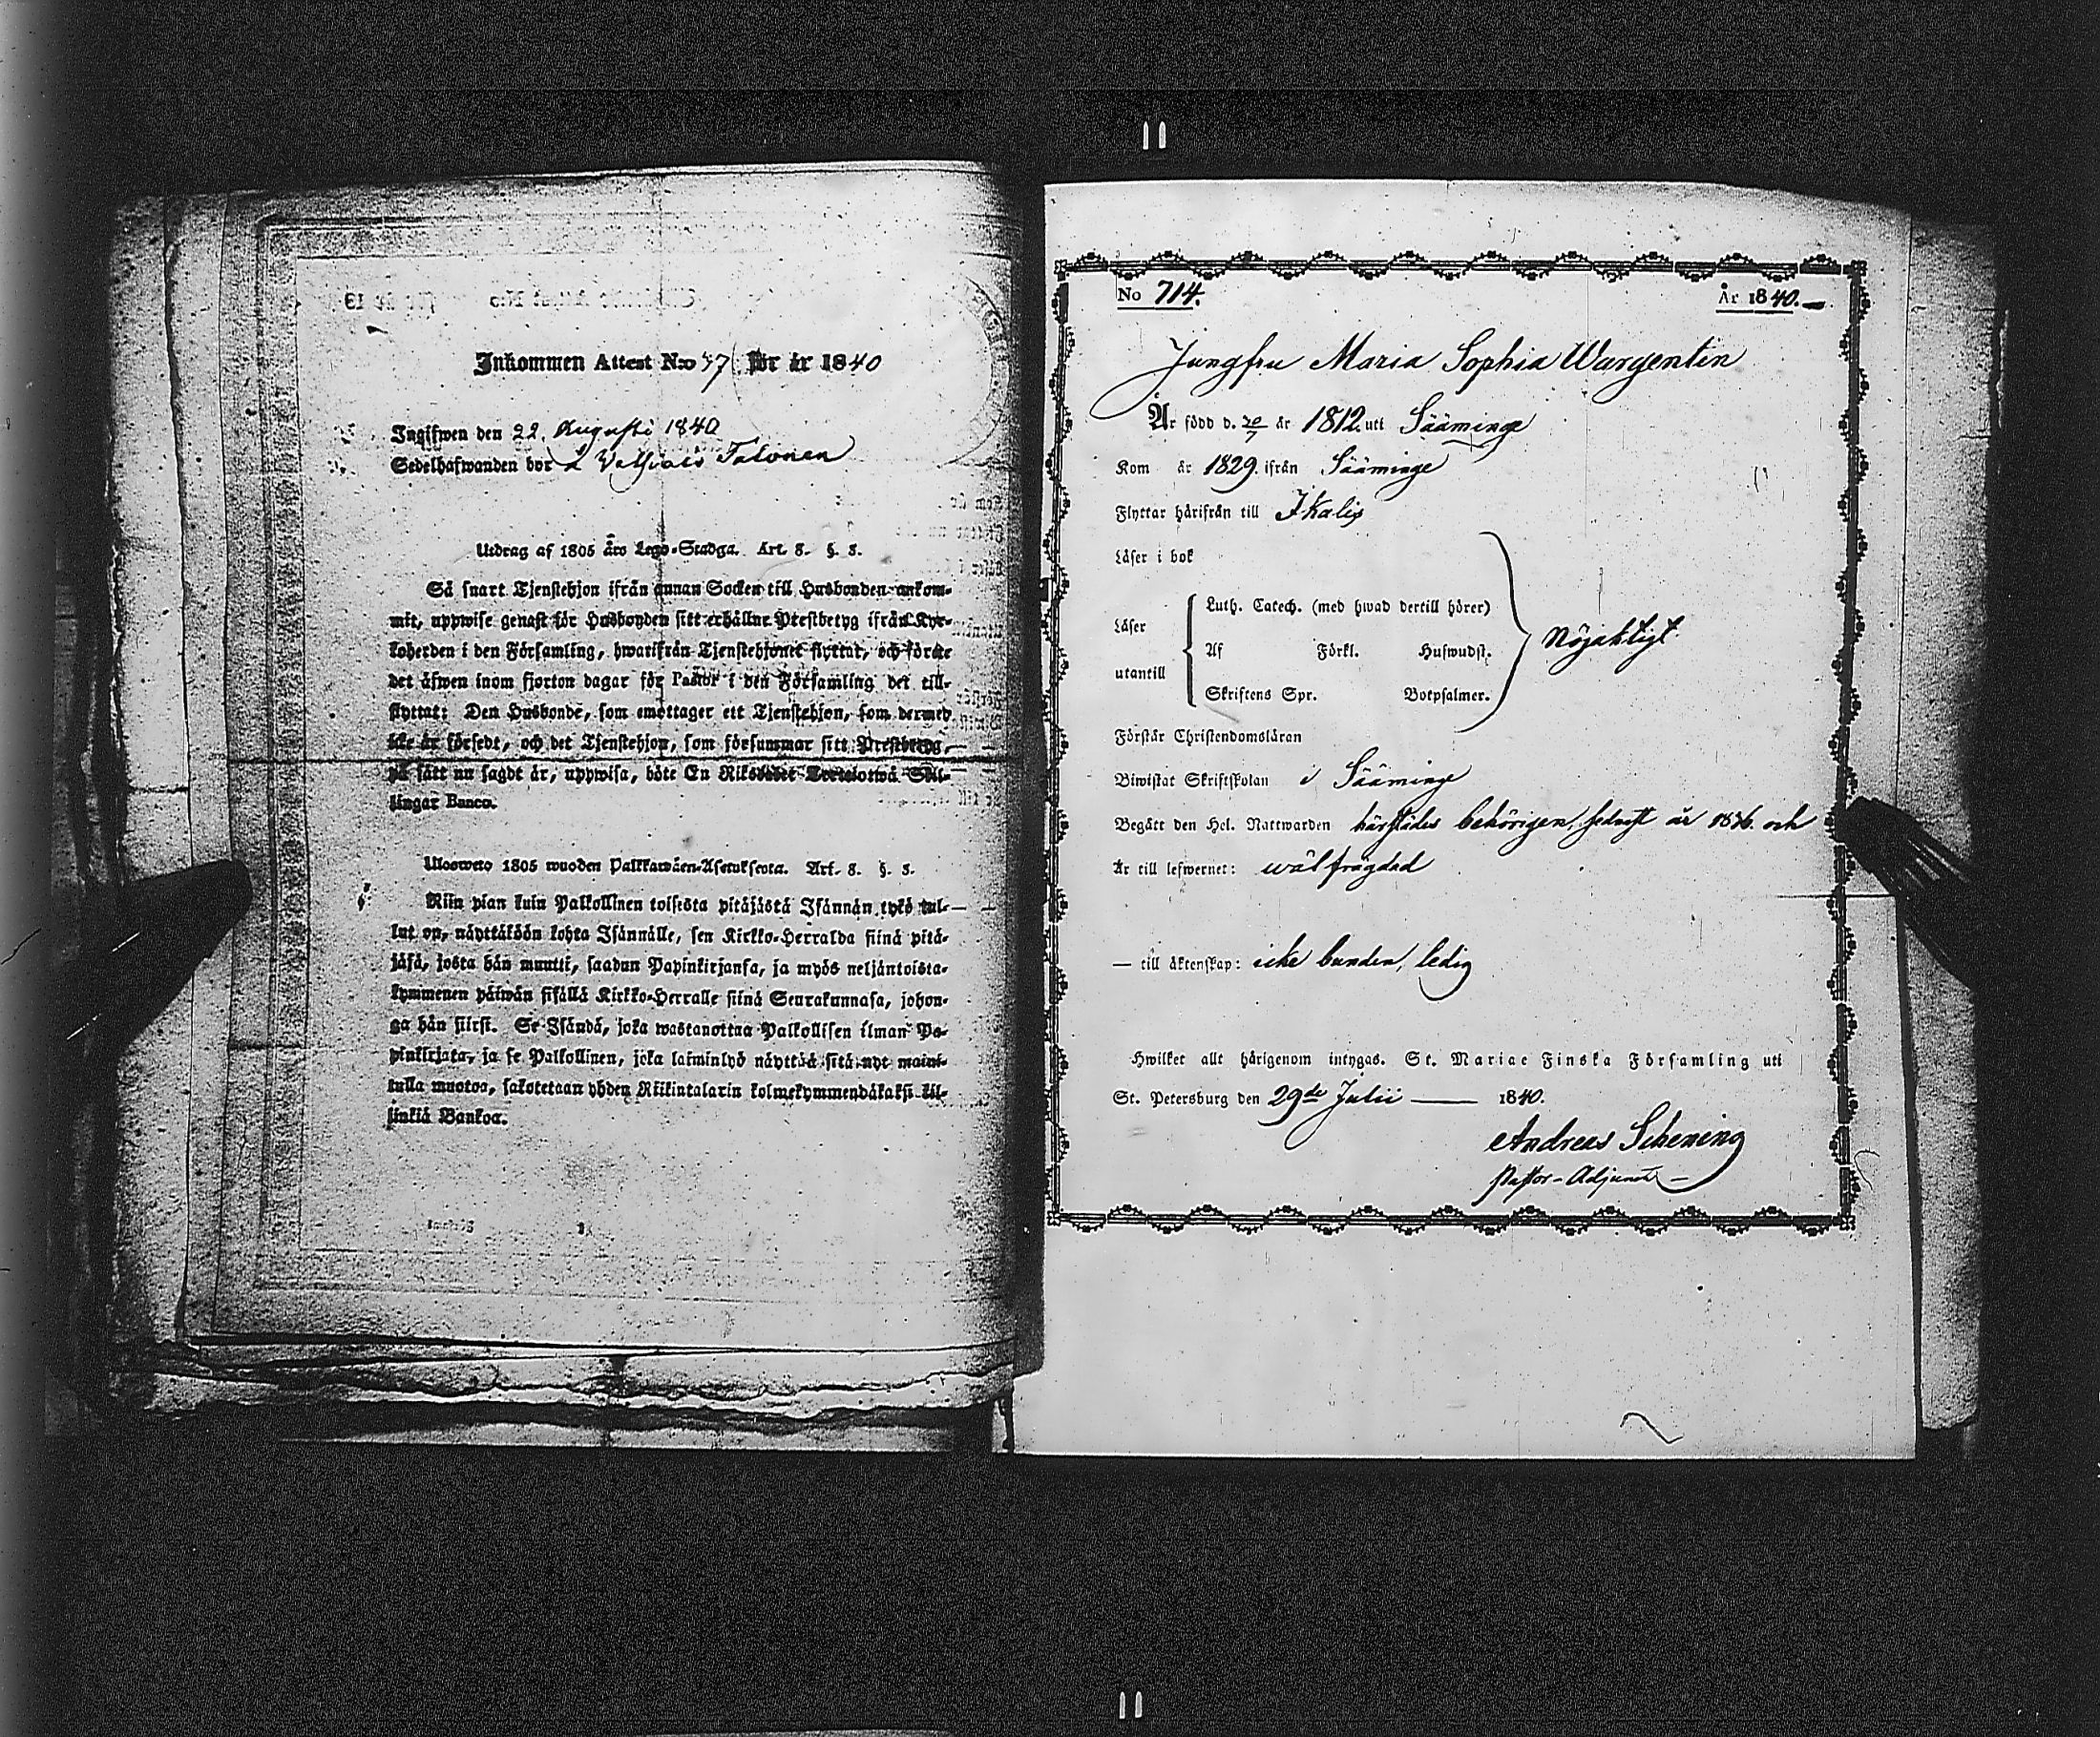 Inkommen Attest N:o 57 för år 1840
Ingifwen den 22. Augusti 1840
Sedelhafwanden bor å Talonen
Utdrag af 1805 års Lego-Stadga. Art. 8. §. 3.
Så snart Tjenstehjon ifrån annan Socken till Husbonden ankom-
mit, uppwise genast för Husbonden sitt erhållne Prestbetyg ifrån Kyr-
koherden i den Församling, hwarifrån Tjenstehjonet flyttat, och förete
det äfwen inom fjorton dagar för Pastor i den Församling det till-
flyttat: Den Husbonde, som emottager ett Tjenstehjon, som dermed
icke är försedt, och det Tjenstehjon, som försummar sitt Prestbetyg,
på sätt nu sagdt är, uppwisa, böte En Riksdaler Trettiotwå Skil-
lingar Banco.
Ulosweto 1805 wuoden Palkkawäen-Asetuksesta. Art. 8. §. 3.
Niin pian kuin Palkollinen toisesta pitäjästä Isännän tykö tul-
lut on, näyttäköön kohta Isännälle, sen Kirkko-Herralda siinä pitä-
jäsä, josta hän muutti, saadun Papinkirjansa, ja myös neljäntoista-
kymmenen päiwän sisällä Kirkko-Herralle siinä Seurakunnasa, johon-
ga hän siirst. Se Isändä, joka wastanottaa Palkollisen ilman Pa-
pinkirjata, ja se Palkollinen, joka laiminlyö näyttää sitä nyt maini-
tulla muotoa, sakotetaan yhden Riikintalarin kolmekymmendäkaksi kil-
linkiä Bankoa.
No 714.
År 1840.
Jungfru Maria Sophia Wargentin
Är född d. 20/7 år 1812. uti Sääminge
Kom år 1829. ifrån Sääminge
Flyttar härifrån till Ikalis
Läser i bok
Luth. Catech. (med hwad dertill hörer)
Läser
utantill
Af Förkl. Hufwudst.
Skriftens Spr. Botpsalmer.
Nöjaktigt
Förstår Christendomsläran
Biwistat Skriftskolan i Sääminge
Begått den Hel. Nattwarden härstädes behörigen, sednast år 1836. och
Är till lefwernet: wälfrägdad
— till äktenskap: icke bunden, ledig
Hwilket allt härigenom intygas. St. Mariae Finska Församling uti
St. Petersburg den 29de Julii — 1840.
Andreas Schening
Pastor-Adjunct